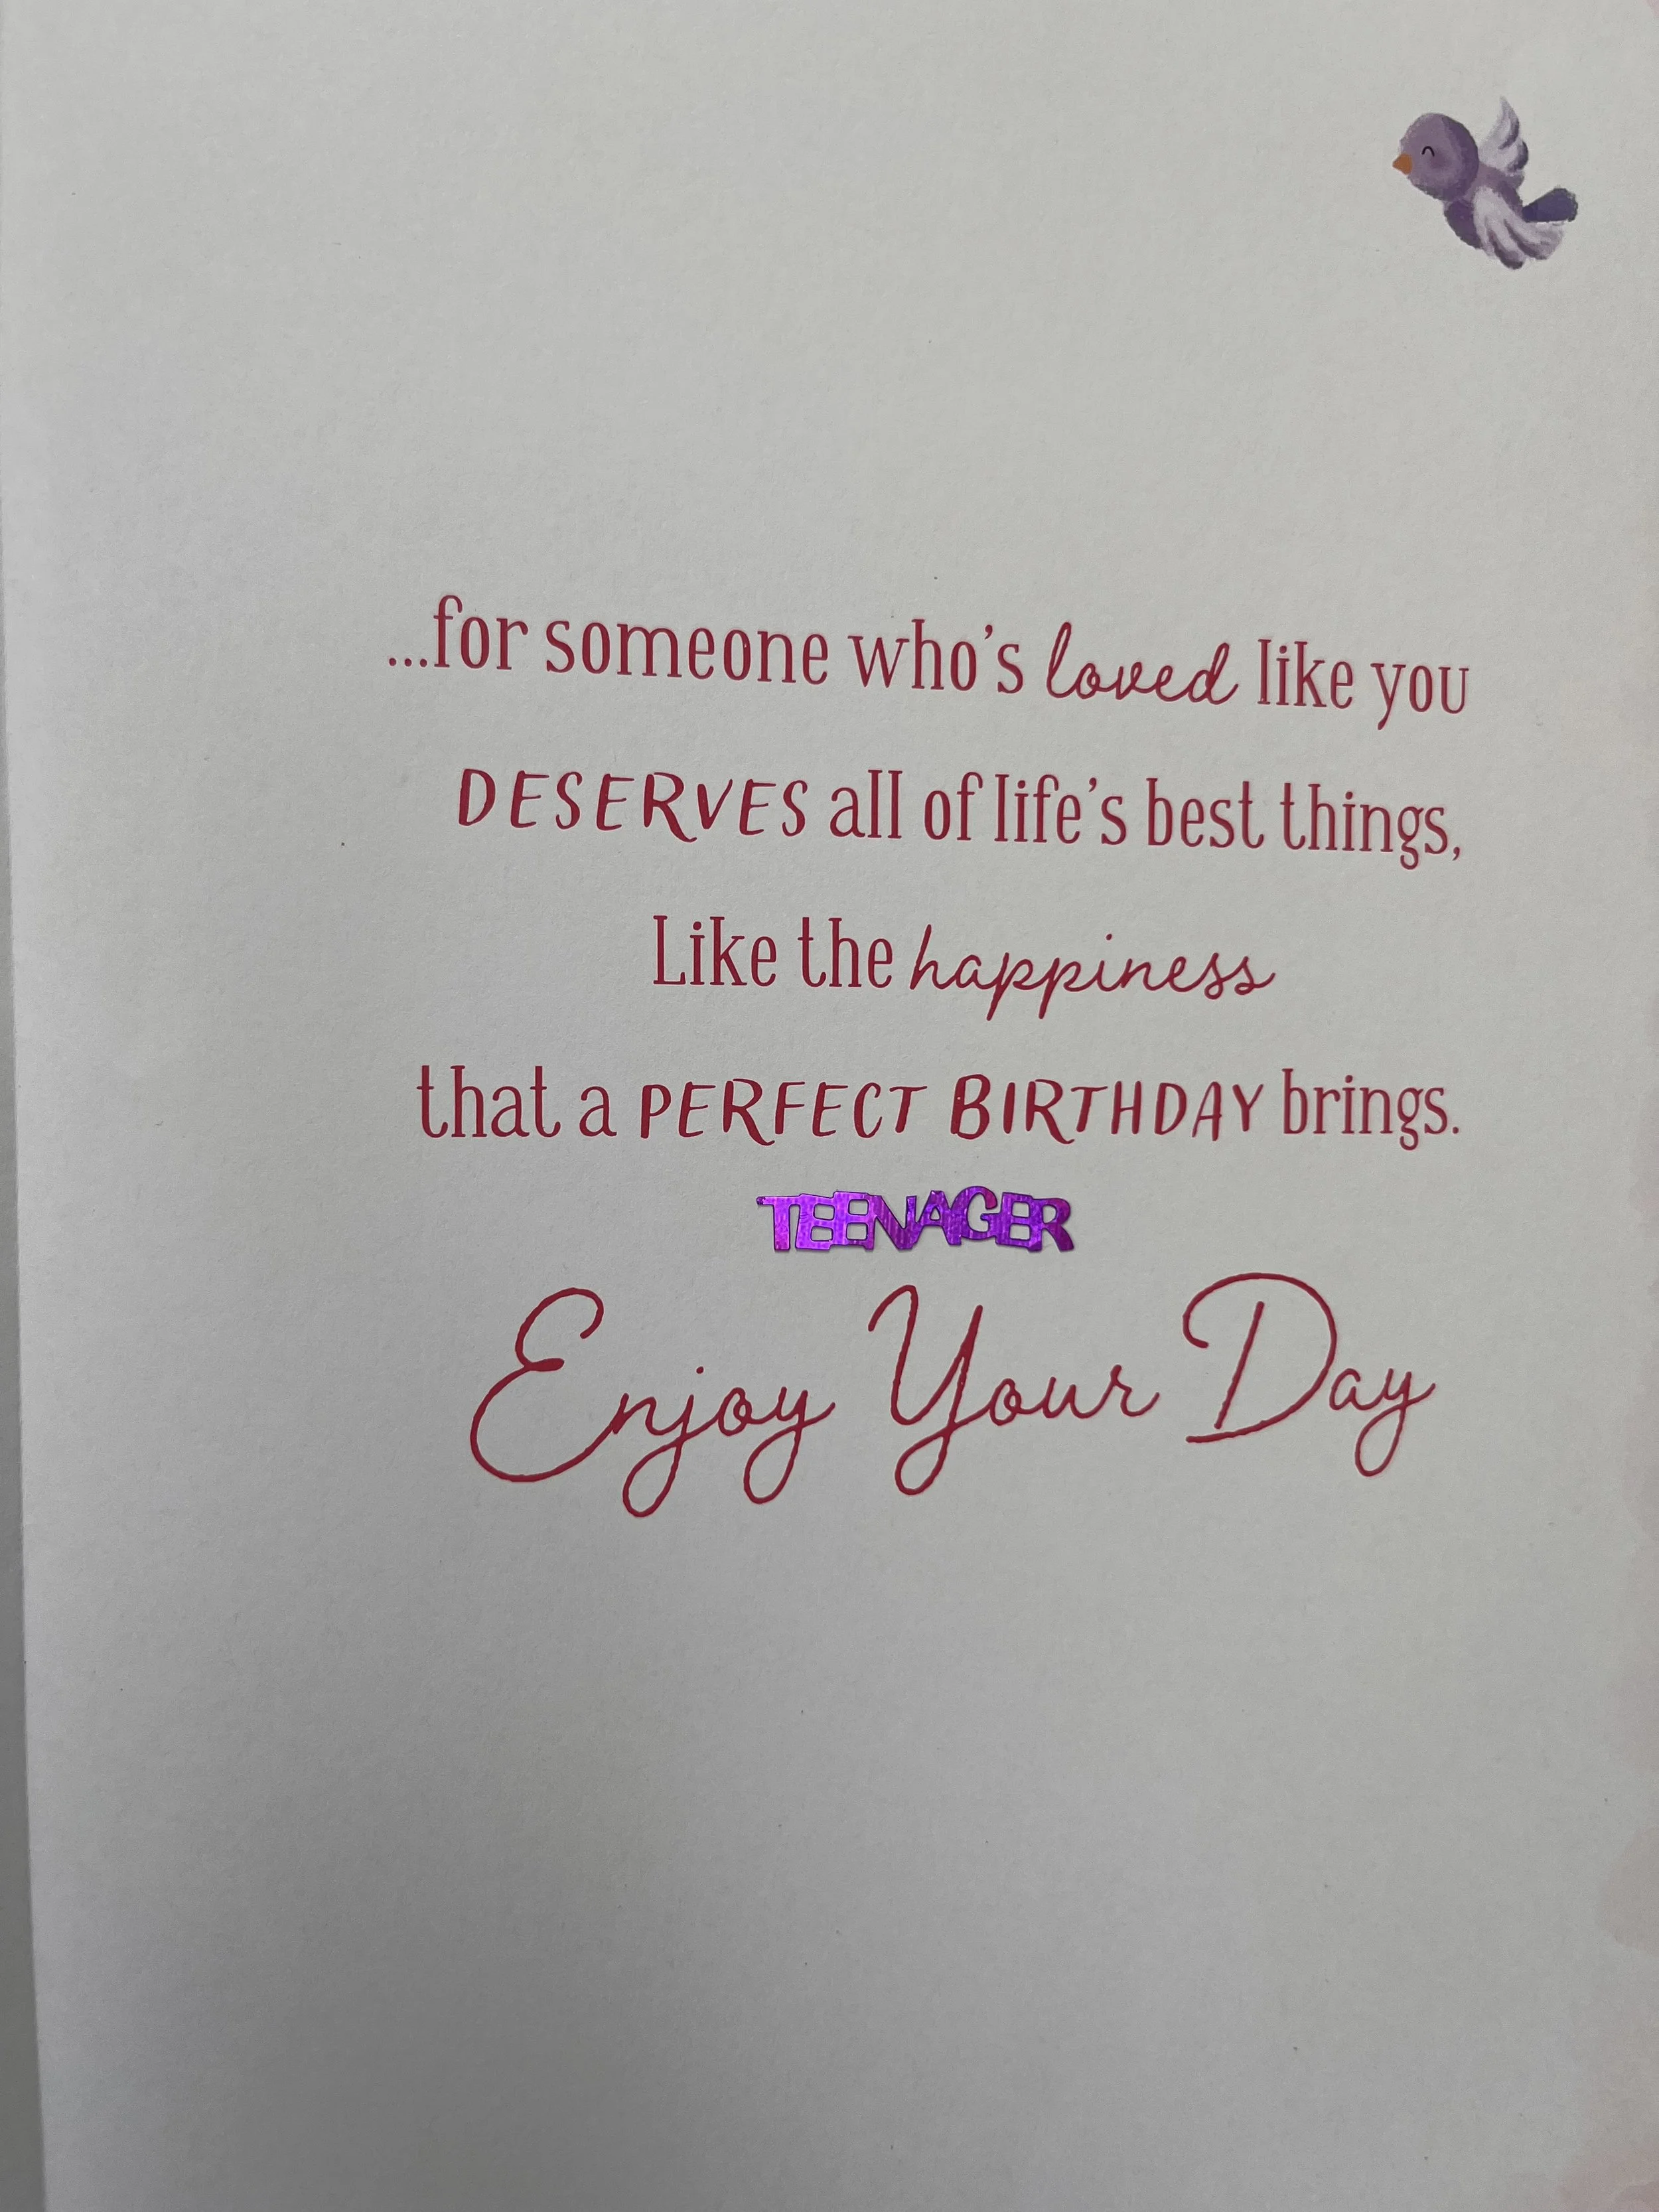 ...for someone who's loved like you
DESERVES all of life's best things,
Like the happiness
that a PERFECT BIRTHDAY brings.
TEENAGER
Enjoy Your Day